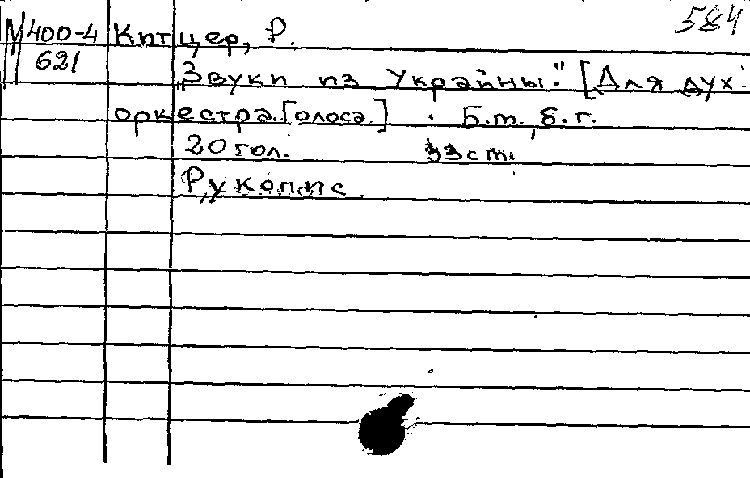 584
М400-4 Китцер, Р.
621
„Звуки из Украйны." [Для дух.
оркестра. [Голоса.] Б.т., б.г.
20 гол. 33 ст.
Рукопис.